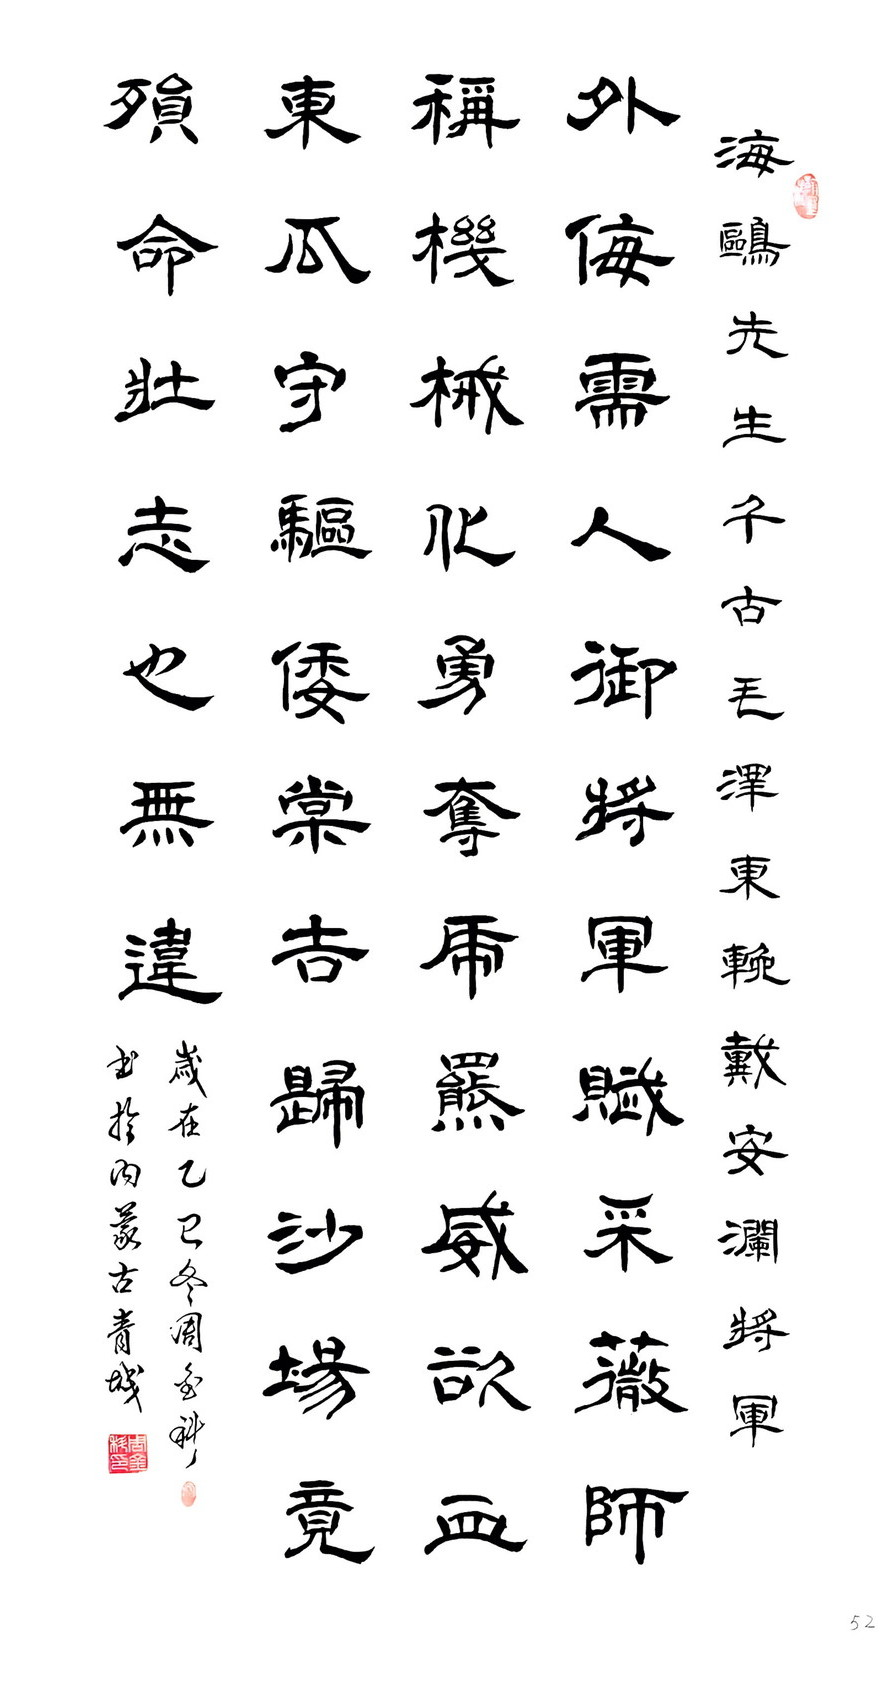 海鷗先生千古毛澤東輓戴安瀾將軍
外侮需人御將軍賦采薇師
稱機械化勇奪虎羆威欲血
東瓜守驅倭棠吉歸沙場竟
殞命壯志也無違
歲在乙巳冬周金科
书於内蒙古青城
周金科印
52